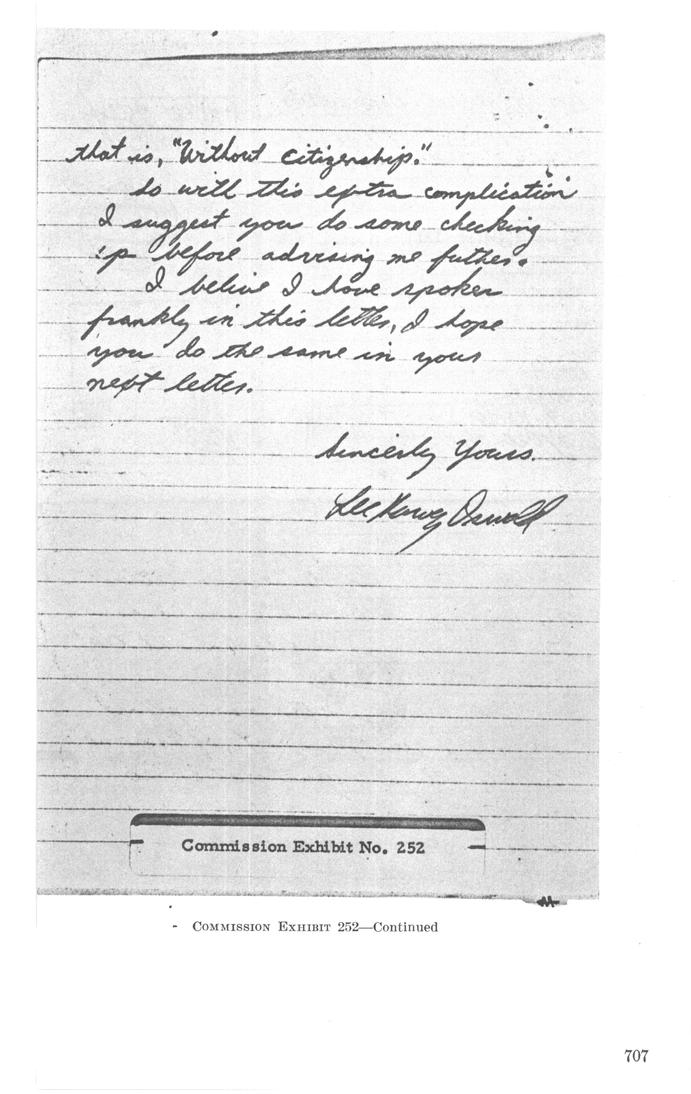 that is, "Without citizenship."
So with this extra complication
I suggest you do some checking
up before advising me futher.
I belive I have spoken
frankly in this letter, I hope
you do the same in your
next letter.
Sincerly Yours.
Lee Harvey Oswald
Commission Exhibit No. 252
- COMMISSION EXHIBIT 252—Continued
707